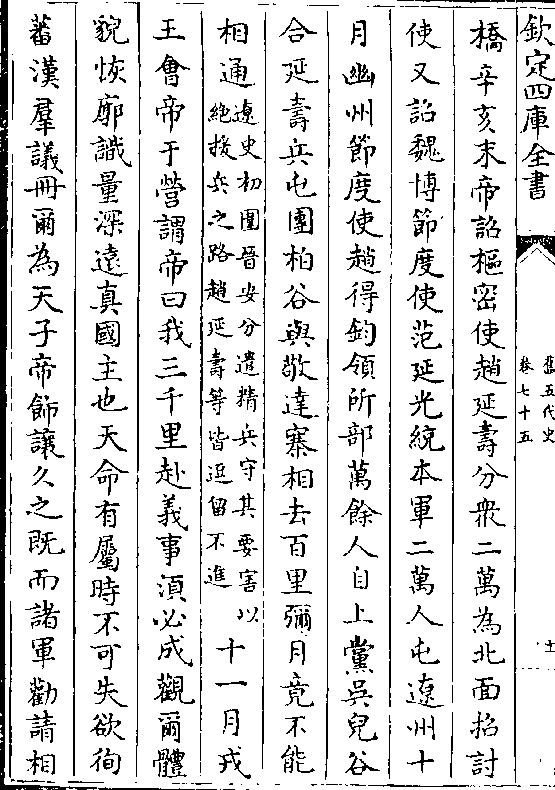 欽定四庫全書
舊五代史
卷七十五
橋辛亥末帝詔樞密使趙延壽分衆二萬為北面招討
使又詔魏博節度使范延光統本軍二萬人屯遼州十
月幽州節度使趙得鈞領所部萬餘人自上黨吳兒谷
合延壽兵屯團柏谷與敬達寨相去百里彌月竟不能
相通遼史初圍晉安分遣精兵守其要害以
絶援兵之路趙延壽等皆逗留不進
十一月戎
王會帝于營謂帝曰我三千里赴義事須必成觀爾體
貌恢廓識量深遠真國主也天命有屬時不可失欲徇
蕃漢羣議冊爾為天子帝飾讓久之既而諸軍勸請相